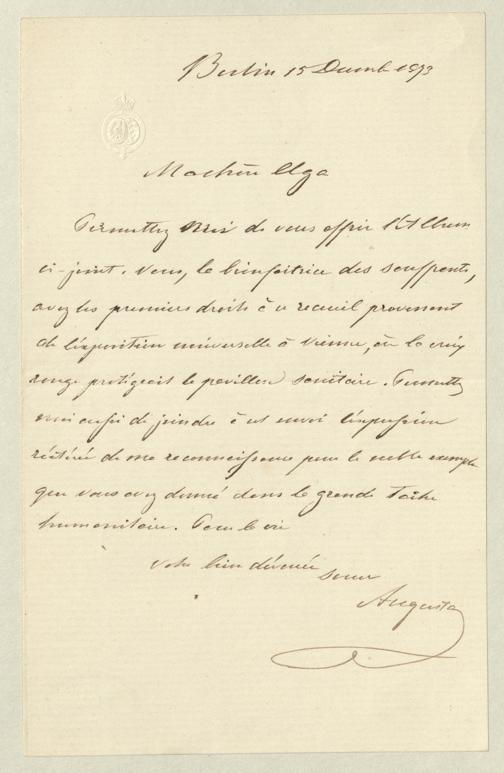 Berlin 15 Decemb 1873
Ma chère Olga
Permettez moi de vous offrir l'Album
ci-joint. Vous, la bienfaitrice des souffrants,
avez les premiers droits à ce recueil provenant
de l'exposition universelle à Vienne, où la croix
rouge protégeait le pavillon sanitaire. Permettez
moi aussi de joindre à cet envoi l'expression
réitérée de ma reconnaissance pour le noble exemple
que vous avez donné dans la grande tâche
humanitaire. Pour la vie
votre bien dévouée
soeur
Augusta